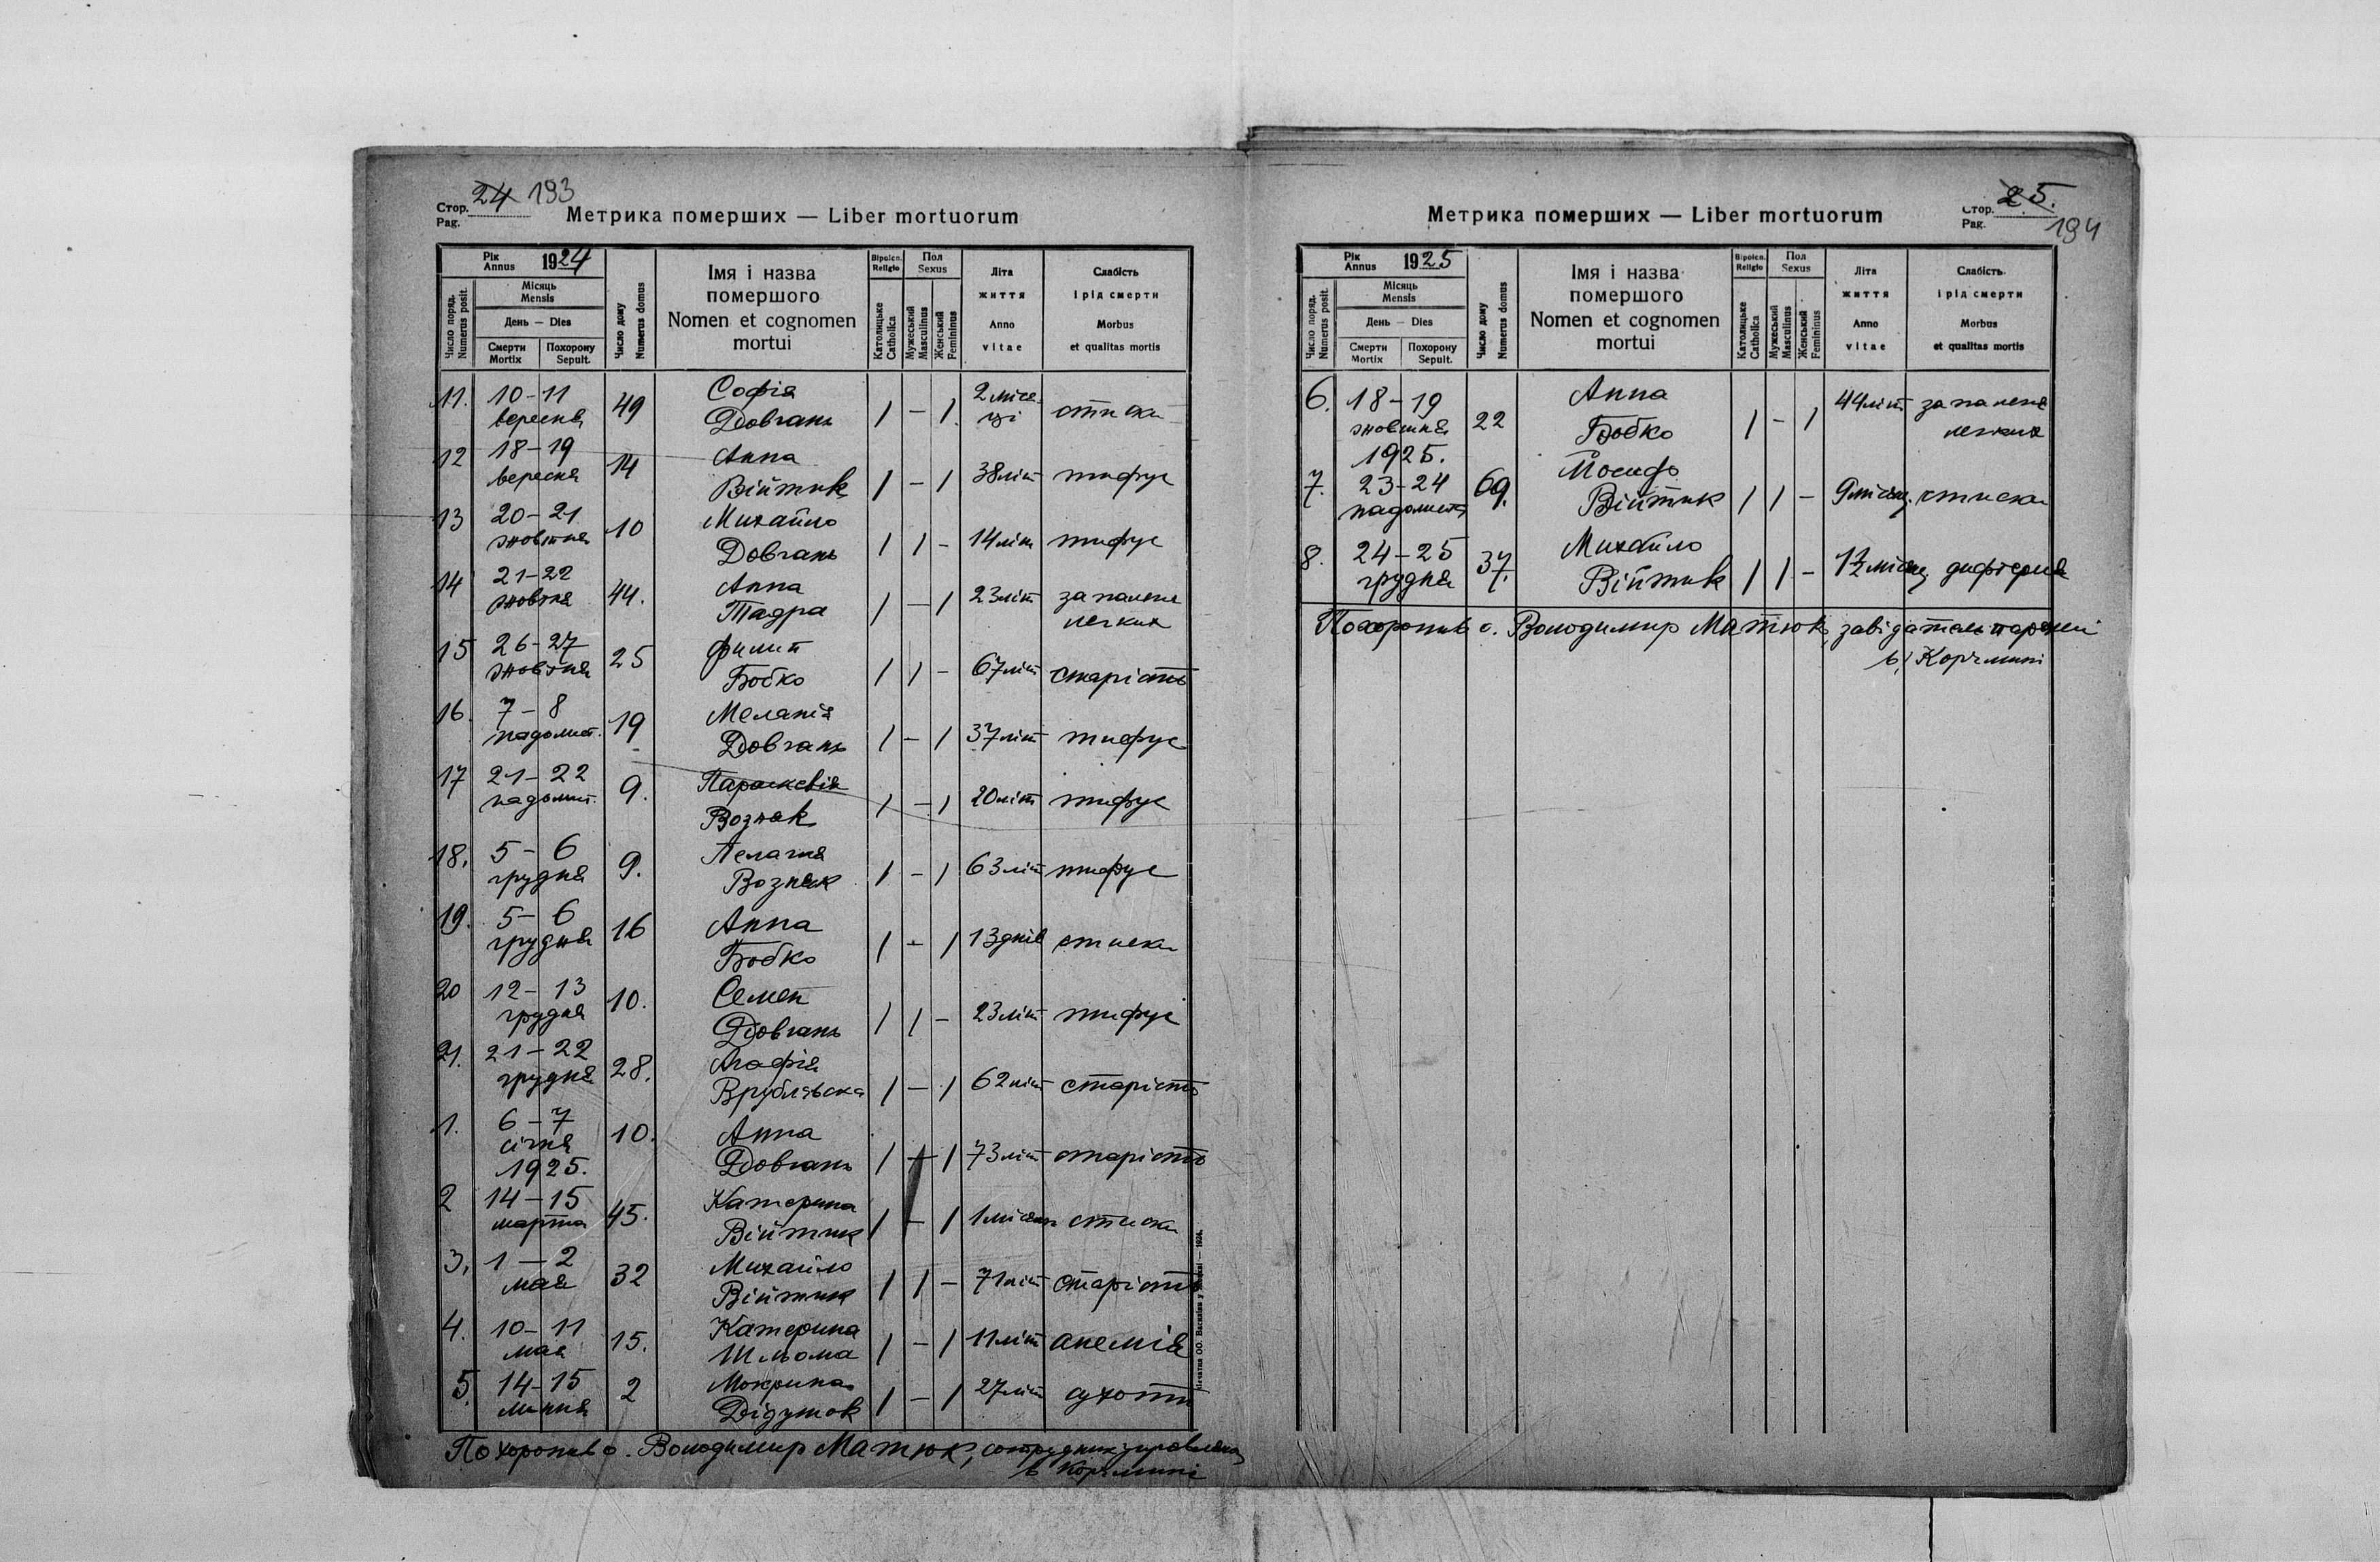 Стор. 24 193
Pag.
Метрика померших — Liber mortuorum
Рік
Annus 1924
Місяць
Mensis
День — Dies
Смерти
Mortix
Похорону
Sepult.
Число поряд.
Numerus posit.
Число дому
Numerus domus
Імя і назва
помершого
Nomen et cognomen
mortui
Віроісп.
Religio
Католицьке
Catholica
Пол
Sexus
Мужеський
Masculinus
Женський
Femininus
Літа
життя
Anno
vitae
Слабість
і рід смерти
Morbus
et qualitas mortis
11. 10-11 вересня 49 Софія Довгань 1 - 1 2 міся-ці стиска
12 18-19 вересня 14 Анна Війтик 1 - 1 38 літ тифус
13 20-21 жовтня 10 Михайло Довгань 1 1 - 14 літ тифус
14 21-22 жовтня 44. Анна Тадра 1 - 1 23 літ запаленя легких
15 26-27 жовтня 25 Филип Бобко 1 1 - 67 літ старість
16. 7-8 падолист. 19 Меланія Довгань 1 - 1 37 літ тифус
17 21-22 падолист. 9. Параскевія Возняк 1 - 1 20 літ тифус
18. 5-6 грудня 9. Пелагия Возняк 1 - 1 63 літ тифус
19. 5-6 грудня 16 Анна Бобко 1 - 1 13 днів стиска
20 12-13 грудня 10. Семен Довгань 1 1 - 23 літ тифус
21. 21-22 грудня 28. Агафія Врублєвска 1 - 1 62 літ старість
1. 6-7 січня 1925. 10. Анна Довгань 1 - 1 73 літ старість
2 14-15 марта 45. Катерина Війтик 1 - 1 1 місяць стиска
3. 1-2 мая 32 Михайло Війтик 1 1 - 71 літ старість
4. 10-11 мая 15. Катерина Шльома 1 - 1 11 літ анемія
5. 14-15 липня 2 Мокрина Дідушок 1 - 1 27 літ сухоти
Похоронив о. Володимир Матюк, сотрудник управляющ
в Корчмині
Печатня ОО. Василіян у Жовкві — 1924.
Метрика померших — Liber mortuorum
Стор. 25.
Pag. 194
Рік
Annus 1925
Місяць
Mensis
День — Dies
Смерти
Mortix
Похорону
Sepult.
Число поряд.
Numerus posit.
Число дому
Numerus domus
Імя і назва
помершого
Nomen et cognomen
mortui
Віроісп.
Religio
Католицьке
Catholica
Пол
Sexus
Мужеський
Masculinus
Женський
Femininus
Літа
життя
Anno
vitae
Слабість
і рід смерти
Morbus
et qualitas mortis
6. 18-19 жовтня 1925. 22 Анна Бобко 1 - 1 44 літ запаленя легких
7. 23-24 падолиста 69. Йосиф Війтик 1 1 - 9 місяц. стиска
8. 24-25 грудня 37. Михайло Війтик 1 1 - 1½ місяц дифтерия
Похоронив о. Володимир Матюк, завідатель парохії
в Корчмині